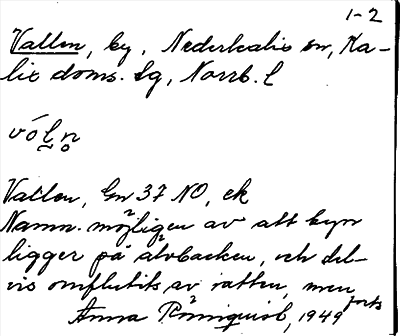 1-2
Vallen, by, Nederkalix sn, Ka-
lix doms. sg, Norrb. l
vóln
Vallen, Gn 37 NO, ek
Namn. möjligen av att byn
ligger på älvbacken, och del-
vis omflutits av vatten, men
forts
Anna Rönnquist, 1949